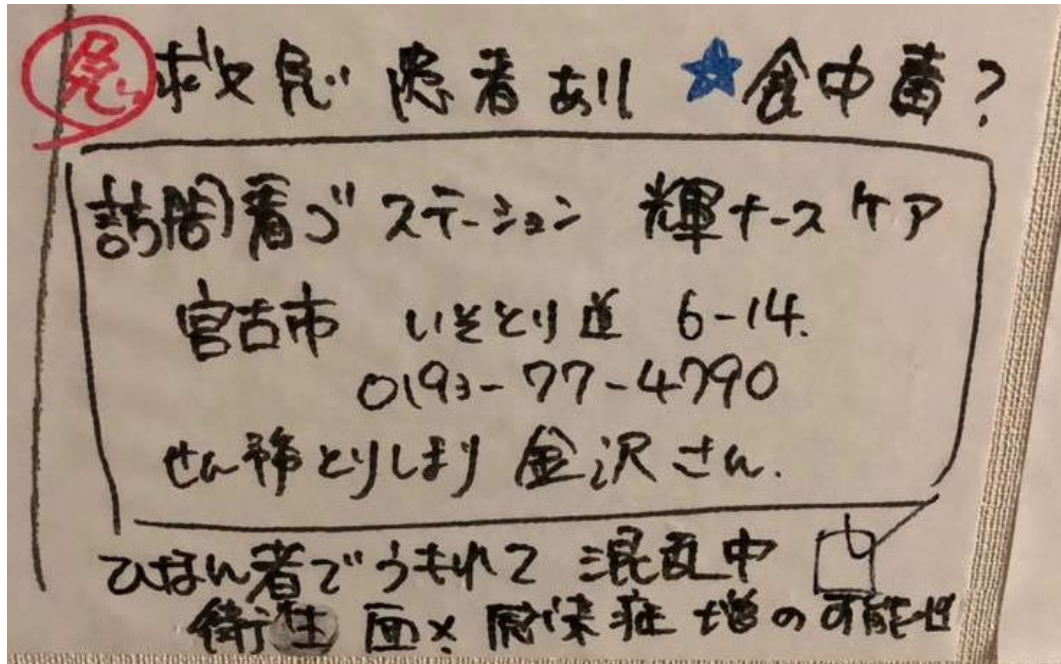 急 救急患者あり ★食中毒?
訪問看ゴステーション 輝ナースケア
宮古市 いそとり道 6-14.
0193-77-4790
せん務とりしまり 金沢さん.
ひなん者でうもれて 混乱中
衛生面× 感染症 増の可能せ